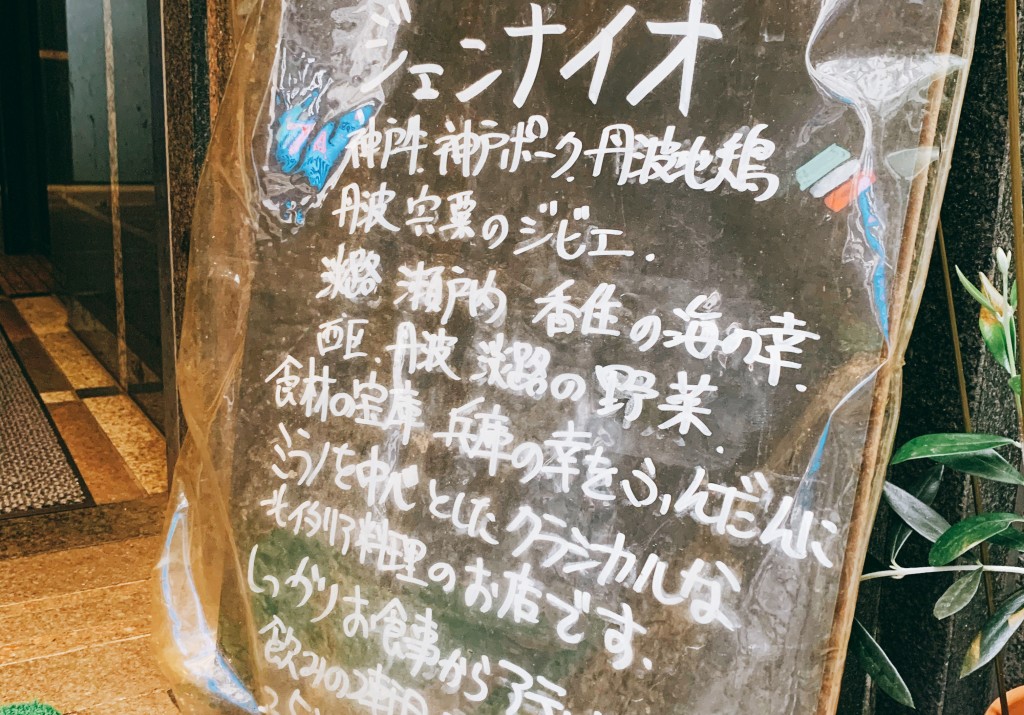 ジェンナイオ
神戸牛.神戸ポーク.丹波地鶏
丹波 宍粟のジビエ.
淡路 瀬戸内 香住の海の幸.
西区.丹波 淡路の野菜.
食材の宝庫 兵庫の幸をふんだんに
ミラノを中心としたクラシカルな
北イタリア料理のお店です.
しっかりお食事からアテ
飲みの2軒目